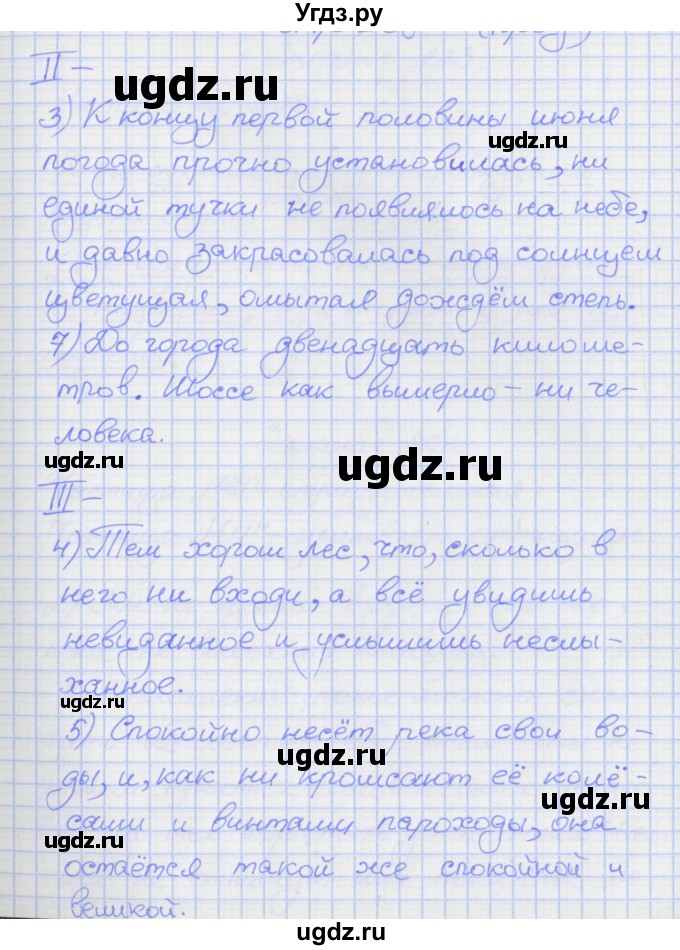 Угдз.ру
II –
ugdz.ru
3) К концу первой половины июня
ugdz.ru
погода прочно установилась, ни
единой тучки не появлялось на небе,
и давно закрасовалась под солнцем
цветущая, омытая дождём степь.
7) До города двенадцать киломе-
тров. Шоссе как вымерло – ни че-
ловека.
ugdz.ru
ugdz.ru
III –
4) Тем хорош лес, что, сколько в
него ни входи, а всё увидишь
невиданное и услышишь неслы-
ханное.
ugdz.ru
5) Спокойно несёт река свои во-
ugdz.ru
ды, и, как ни кромсают её колё-
ugdz.ru
сами и винтами пароходы, она
ugdz.ru
остаётся такой же спокойной и
великой.
ugdz.ru